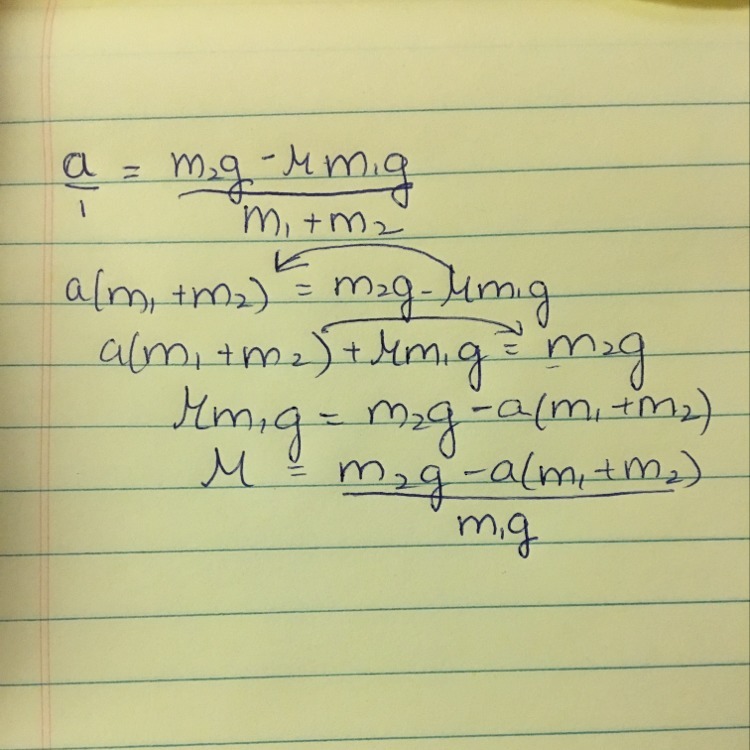 a/1 = (m₂g - μm₁g)/(m₁ + m₂)
a(m₁ + m₂) = m₂g - μm₁g
a(m₁ + m₂) + μm₁g = m₂g
μm₁g = m₂g - a(m₁ + m₂)
μ = (m₂g - a(m₁ + m₂))/(m₁g)